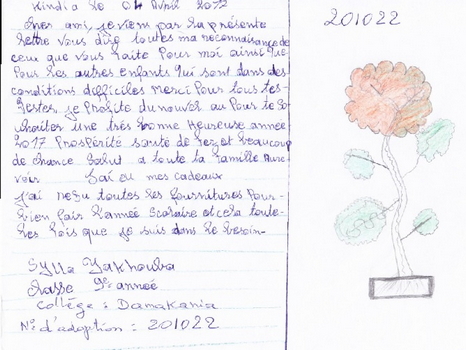 Kindia le 04 Avril 2012
Cher ami, je viens par la présente
lettre vous dire toutes ma reconnaissance de
ceux que vous faite pour moi ainsi que
pour les autres enfants qui sont dans des
conditions difficiles merci pour tous tes
gestes je profite du nouvel an pour te so-
uhaitez une très bonne Heureuse année
2017 prospérité santé de fer et beaucoup
de chance Salut a toute la famille Aure-
voir J'ai eu mes cadeaux
J'ai reçu toutes les fournitures pour
bien fair l'année scolaire et cela toute
les fois que je suis dans le besoin
Sylla Yakhouba
classe 9e année
Collège : Damakania
N° d'adoption : 201022
201022